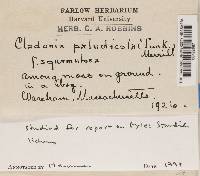 FARLOW HERBARIUM
Harvard University
HERB. C. A. ROBBINS
Cladonia paludicola (Tuck.)
Merrill
f. squamulosa
among moss on ground.
in a bog.
Wareham, Massachusetts
1926.
Studied for report on Myles Standish
ANNOTATED BY
DATE